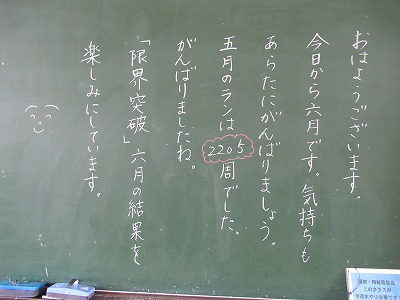 おはようございます。
今日から六月です。気持ちも
あらたにがんばりましょう。
五月のランは2205周でした。
がんばりましたね。
「限界突破」六月の結果を
楽しみにしています。
このクラスが